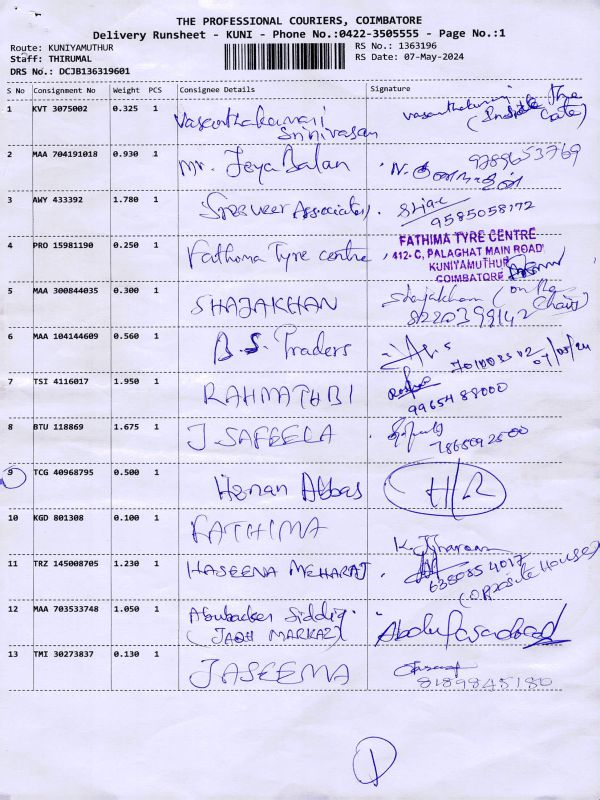 THE PROFESSIONAL COURIERS, COIMBATORE
Delivery Runsheet - KUNI - Phone No.:0422-3505555 - Page No.:1
Route: KUNIYAMUTHUR
Staff: THIRUMAL
DRS No.: DCJB136319601
RS No.: 1363196
RS Date: 07-May-2024
S No Consignment No Weight PCS Consignee Details Signature
1 KVT 3075002 0.325 1 Vasanthakumari Srinivasan vasanthakumari
2 MAA 704191018 0.930 1 Mr. Jeya Balan N. 9789653769
3 AWY 433392 1.780 1 Associates 9585058172
4 PRO 15981190 0.250 1 Fathima Tyre centre
FATHIMA TYRE CENTRE
412-C, PALAGHAT MAIN ROAD
KUNIYAMUTHUR
COIMBATORE
5 MAA 300844035 0.300 1 SHAJAKHAN Shajakhan (on the Chair) 8220399142
6 MAA 104144609 0.560 1 B.S. Traders 07/05/24
7 TSI 4116017 1.950 1 RAHMATHBI 9965488000
8 BTU 118869 1.675 1 J SAFEELA 7865092500
9 TCG 40968795 0.500 1 Abbas H/R
10 KGD 801308 0.100 1 FATHIMA
11 TRZ 145008705 1.230 1 HASEENA MEHARAJ 6380854017
(opposite House)
12 MAA 703533748 1.050 1 Abubacker Siddiq
(JAQH MARKAZ)
13 TMI 30273837 0.130 1 JASEEMA 8189845180
1